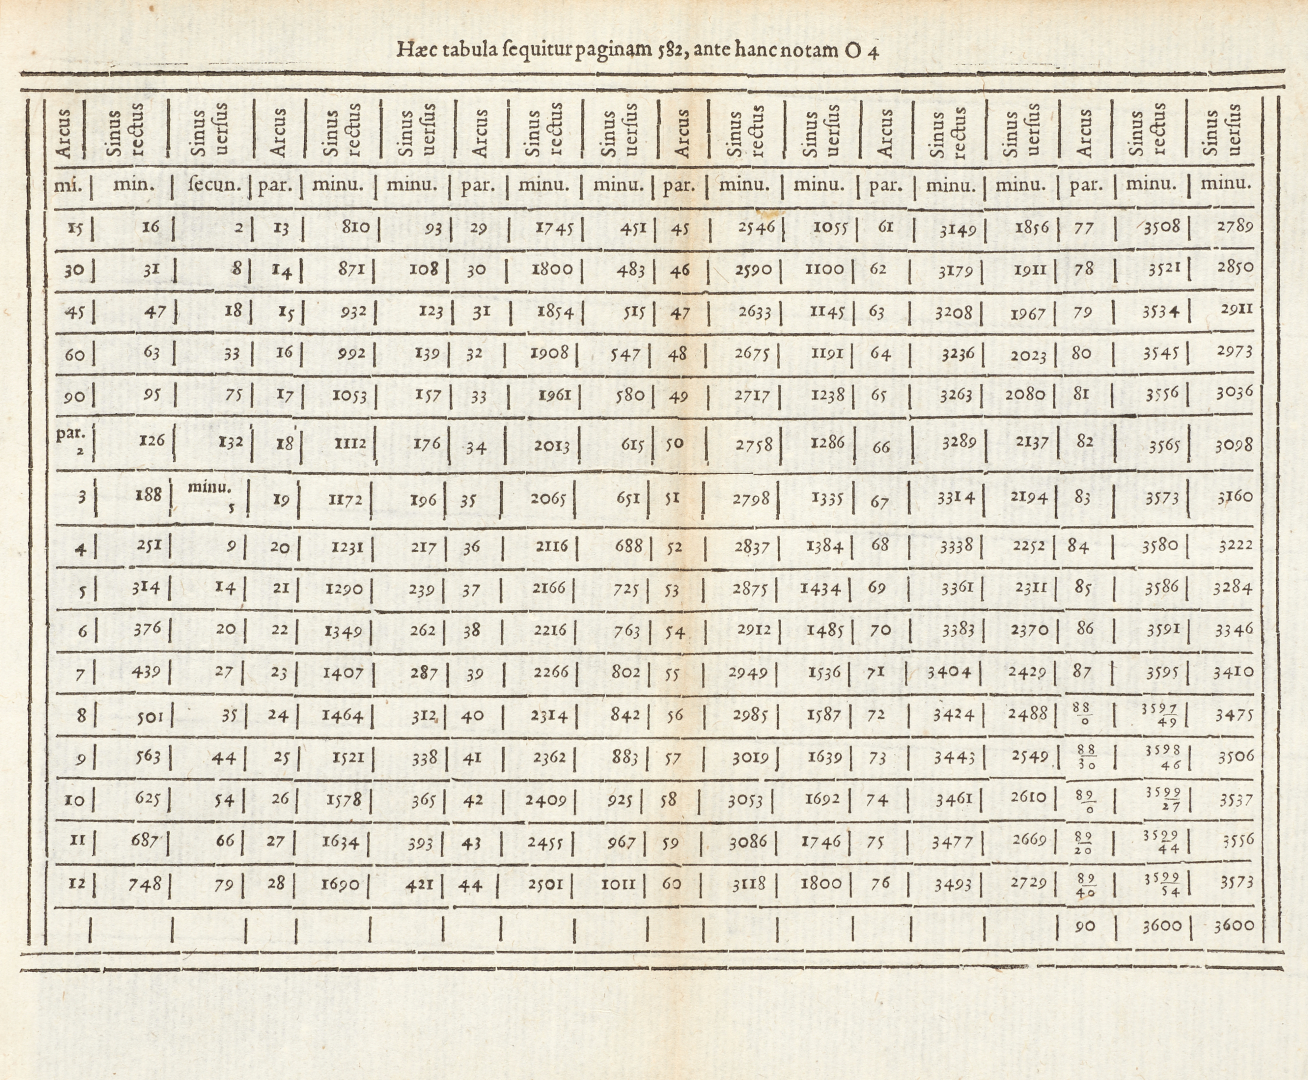 Hæc tabula ſequitur paginam 582, ante hanc notam O 4
Arcus | Sinus rectus | Sinus uerſus | Arcus | Sinus rectus | Sinus uerſus | Arcus | Sinus rectus | Sinus uerſus | Arcus | Sinus rectus | Sinus uerſus | Arcus | Sinus rectus | Sinus uerſus | Arcus | Sinus rectus | Sinus uerſus
mi. | min. | ſecun. | par. | minu. | minu. | par. | minu. | minu. | par. | minu. | minu. | par. | minu. | minu. | par. | minu. | minu.
15 | 16 | 2 | 13 | 810 | 93 | 29 | 1745 | 451 | 45 | 2546 | 1055 | 61 | 3149 | 1856 | 77 | 3508 | 2789
30 | 31 | 8 | 14 | 871 | 108 | 30 | 1800 | 483 | 46 | 2590 | 1100 | 62 | 3179 | 1911 | 78 | 3521 | 2850
45 | 47 | 18 | 15 | 932 | 123 | 31 | 1854 | 515 | 47 | 2633 | 1145 | 63 | 3208 | 1967 | 79 | 3534 | 2911
60 | 63 | 33 | 16 | 992 | 139 | 32 | 1908 | 547 | 48 | 2675 | 1191 | 64 | 3236 | 2023 | 80 | 3545 | 2973
90 | 95 | 75 | 17 | 1053 | 157 | 33 | 1961 | 580 | 49 | 2717 | 1238 | 65 | 3263 | 2080 | 81 | 3556 | 3036
par. 2 | 126 | 132 | 18 | 1112 | 176 | 34 | 2013 | 615 | 50 | 2758 | 1286 | 66 | 3289 | 2137 | 82 | 3565 | 3098
3 | 188 | minu. 5 | 19 | 1172 | 196 | 35 | 2065 | 651 | 51 | 2798 | 1335 | 67 | 3314 | 2194 | 83 | 3573 | 3160
4 | 251 | 9 | 20 | 1231 | 217 | 36 | 2116 | 688 | 52 | 2837 | 1384 | 68 | 3338 | 2252 | 84 | 3580 | 3222
5 | 314 | 14 | 21 | 1290 | 239 | 37 | 2166 | 725 | 53 | 2875 | 1434 | 69 | 3361 | 2311 | 85 | 3586 | 3284
6 | 376 | 20 | 22 | 1349 | 262 | 38 | 2216 | 763 | 54 | 2912 | 1485 | 70 | 3383 | 2370 | 86 | 3591 | 3346
7 | 439 | 27 | 23 | 1407 | 287 | 39 | 2266 | 802 | 55 | 2949 | 1536 | 71 | 3404 | 2429 | 87 | 3595 | 3410
8 | 501 | 35 | 24 | 1464 | 312 | 40 | 2314 | 842 | 56 | 2985 | 1587 | 72 | 3424 | 2488 | 88 0 | 3597 49 | 3475
9 | 563 | 44 | 25 | 1521 | 338 | 41 | 2362 | 883 | 57 | 3019 | 1639 | 73 | 3443 | 2549 | 88 30 | 3598 46 | 3506
10 | 625 | 54 | 26 | 1578 | 365 | 42 | 2409 | 925 | 58 | 3053 | 1692 | 74 | 3461 | 2610 | 89 0 | 3599 27 | 3537
11 | 687 | 66 | 27 | 1634 | 393 | 43 | 2455 | 967 | 59 | 3086 | 1746 | 75 | 3477 | 2669 | 89 20 | 3599 44 | 3556
12 | 748 | 79 | 28 | 1690 | 421 | 44 | 2501 | 1011 | 60 | 3118 | 1800 | 76 | 3493 | 2729 | 89 40 | 3599 54 | 3573
90 | 3600 | 3600